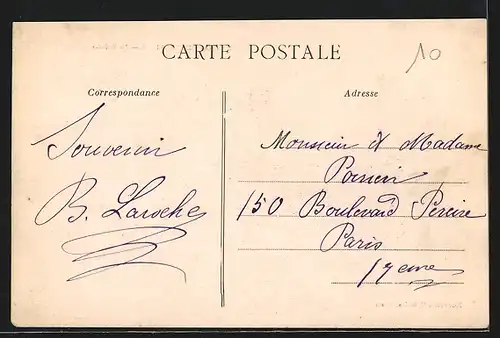 CARTE POSTALE
10
Correspondance
Adresse
Souvenir
B. Laroche
Monsieur & Madame
150 Boulevard Pereire
Paris
17eme